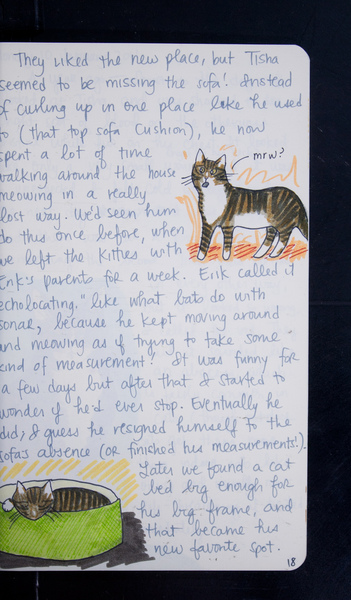 They liked the new place, but Tisha
seemed to be missing the sofa! Instead
of curling up in one place like he used
to (that top sofa cushion), he now
spent a lot of time
walking around the house
meowing in a really
lost way. We'd seen him
do this once before, when
we left the kitties with
Erik's parents for a week. Erik called it
"echolocating." like what bats do with
sonar, because he kept moving around
and meowing as if trying to take some
kind of measurement! It was funny for
a few days but after that I started to
wonder if he'd ever stop. Eventually he
did, I guess he resigned himself to the
sofa's absence (or finished his measurements!).
Later we found a cat
bed big enough for
his big frame, and
that became his
new favorite spot.
mrw?
18